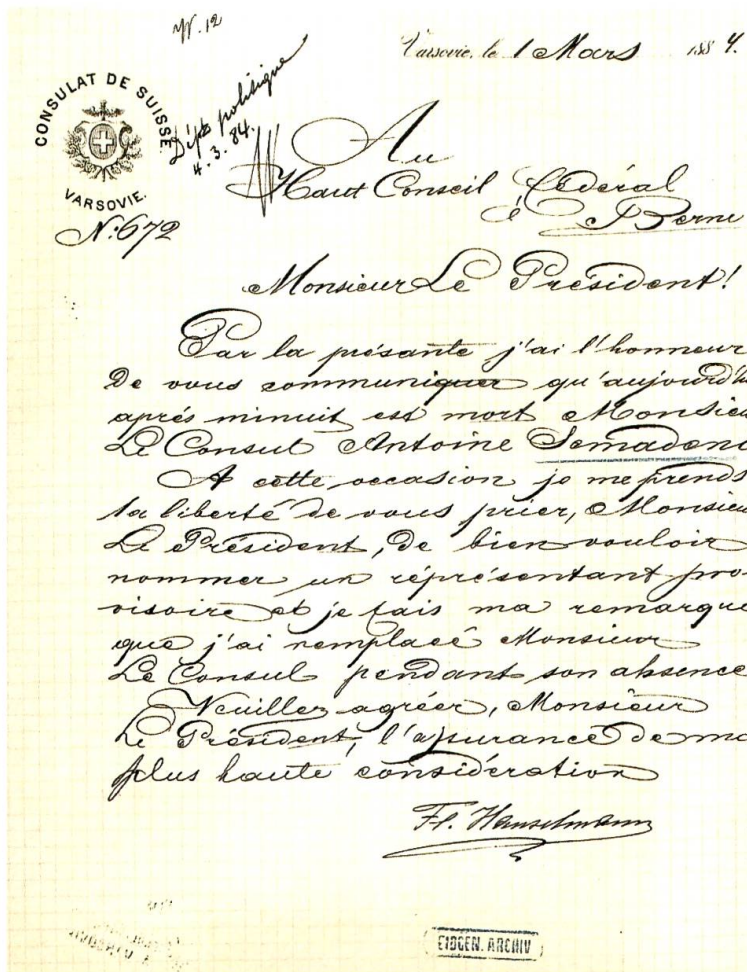 Nr. 12
Varsovie, le 1 Mars 1884.
CONSULAT DE SUISSE
VARSOVIE.
Dépt politique
4. 3. 84.
Nº: 672
Au
Haut Conseil Fédéral
à Berne
Monsieur Le Président!
Par la présante j'ai l'honneur
De vous communiquer qu'aujourd'h
aprés minuit est mort Monsieu
Le Consul Antoine Semadeni
A cette occasion je me prends
la liberté de vous prier, Monsieu
Le Président, De bien vouloir
nommer un répréséntant pro-
visoire et je fais ma remarque
que j'ai remplacé Monsieur
Le Consul pendant son absence
Veuillez agréer, Monsieur
Le Président, l'assurance de ma
plus haute considération
Hanselmann
EIDGEN. ARCHIV